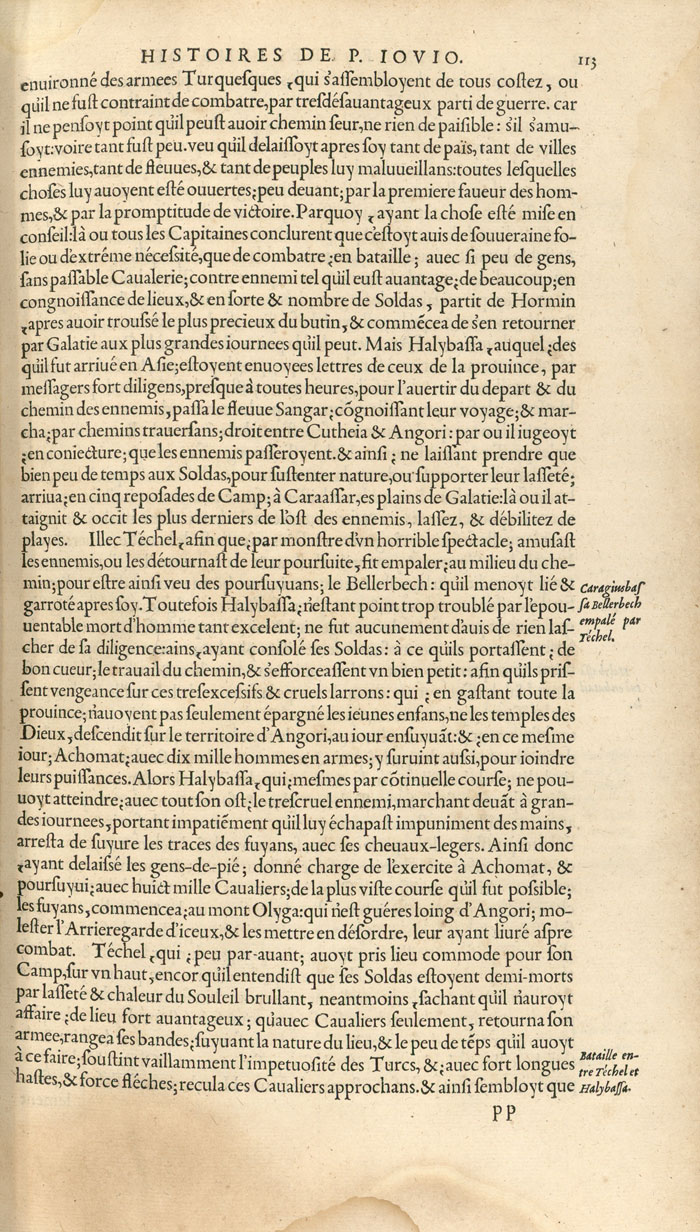 HISTOIRES DE P. IOVIO. 113
enuironné des armees Turquesques ,qui s'assembloyent de tous costez, ou
qu'il ne fust contraint de combatre,par tresdésauantageux parti de guerre. car
il ne pensoyt point qu'il peust auoir chemin seur,ne rien de paisible: s'il s'amu-
soyt:voire tant fust peu.veu qu'il delaissoyt apres soy tant de païs, tant de villes
ennemies,tant de fleuues,& tant de peuples luy malvueillans:toutes lesquelles
choses luy auoyent esté ouuertes;peu deuant;par la premiere faueur des hom-
mes,& par la promptitude de victoire.Parquoy ,ayant la chose esté mise en
conseil:là ou tous les Capitaines conclurent que c'estoyt auis de souueraine fo-
lie ou d'extréme nécessité,que de combatre;en bataille; auec si peu de gens,
sans passable Caualerie;contre ennemi tel qu'il eust auantage;de beaucoup;en
congnoissance de lieux,& en sorte & nombre de Soldas, partit de Hormin
,apres auoir troussé le plus precieux du butin,& commécea de s'en retourner
par Galatie aux plus grandes iournees qu'il peut. Mais Halybassa ,auquel;des
qu'il fut arriué en Asie;estoyent enuoyees lettres de ceux de la prouince, par
messagers fort diligens,presque à toutes heures,pour l'auertir du depart & du
chemin des ennemis,passa le fleuue Sangar;cõgnoissant leur voyage;& mar-
cha;par chemins trauersans;droit entre Cutheia & Angori:par ou il iugeoyt
;en coniecture;que les ennemis passeroyent.& ainsi; ne laissant prendre que
bien peu de temps aux Soldas,pour sustenter nature,ou supporter leur lasseté;
arriua;en cinq reposades de Camp;à Caraassar,es plains de Galatie:là ou il at-
taignit & occit les plus derniers de l'ost des ennemis, lassez, & débilitez de
playes. Illec Téchel,afin que;par monstre d'vn horrible spectacle; amusast
les ennemis,ou les détournast de leur poursuite,fit empaler;au milieu du che-
min;pour estre ainsi veu des poursuyuans; le Bellerbech: qu'il menoyt lié &
garroté apres soy.Toutefois Halybassa;n'estant point trop troublé par l'épou-
uentable mort d'homme tant excelent; ne fut aucunement d'auis de rien las-
cher de sa diligence:ains,ayant consolé ses Soldas: à ce qu'ils portassent; de
bon cueur;le trauail du chemin,& s'efforceassent vn bien petit: afin qu'ils pris-
sent vengeance sur ces tresexcessifs & cruels larrons: qui ; en gastant toute la
prouince;n'auoyent pas seulement épargné les ieunes enfans,ne les temples des
Dieux,descendit sur le territoire d'Angori,au iour ensuyuãt:& ;en ce mesme
iour; Achomat;auec dix mille hommes en armes;y suruint aussi,pour ioindre
leurs puissances. Alors Halybassa,qui;mesmes par cõtinuelle course; ne pou-
uoyt atteindre;auec tout son ost;le trescruel ennemi,marchant deuãt à gran-
des iournees,portant impatiément qu'il luy échapast impuniment des mains,
arresta de suyure les traces des fuyans, auec ses cheuaux-legers. Ainsi donc
,ayant delaissé les gens-de-pié; donné charge de l'exercite à Achomat, &
poursuyui;auec huict mille Caualiers;de la plus viste course qu'il fut possible;
les fuyans,commencea;au mont Olyga:qui n'est guéres loing d'Angori; mo-
lester l'Arrieregarde d'iceux,& les mettre en désordre, leur ayant liuré aspre
combat. Téchel ,qui ;peu par-auant; auoyt pris lieu commode pour son
Camp,sur vn haut,encor qu'il entendist que ses Soldas estoyent demi-morts
par lasseté & chaleur du Souleil brullant, neantmoins ,sachant qu'il n'auroyt
affaire ;de lieu fort auantageux; qu'auec Caualiers seulement, retourna son
armee,rangea ses bandes;suyuant la nature du lieu,& le peu de téps qu'il auoyt
à ce faire;soustint vaillamment l'impetuosité des Turcs, &;auec fort longues
hastes,& force fléches;recula ces Caualiers approchans.& ainsi sembloyt que
PP
Caragiusbas
sa Bellerbech
empalé par
Téchel.
Bataille en-
tre Téchel et
Halybassa.